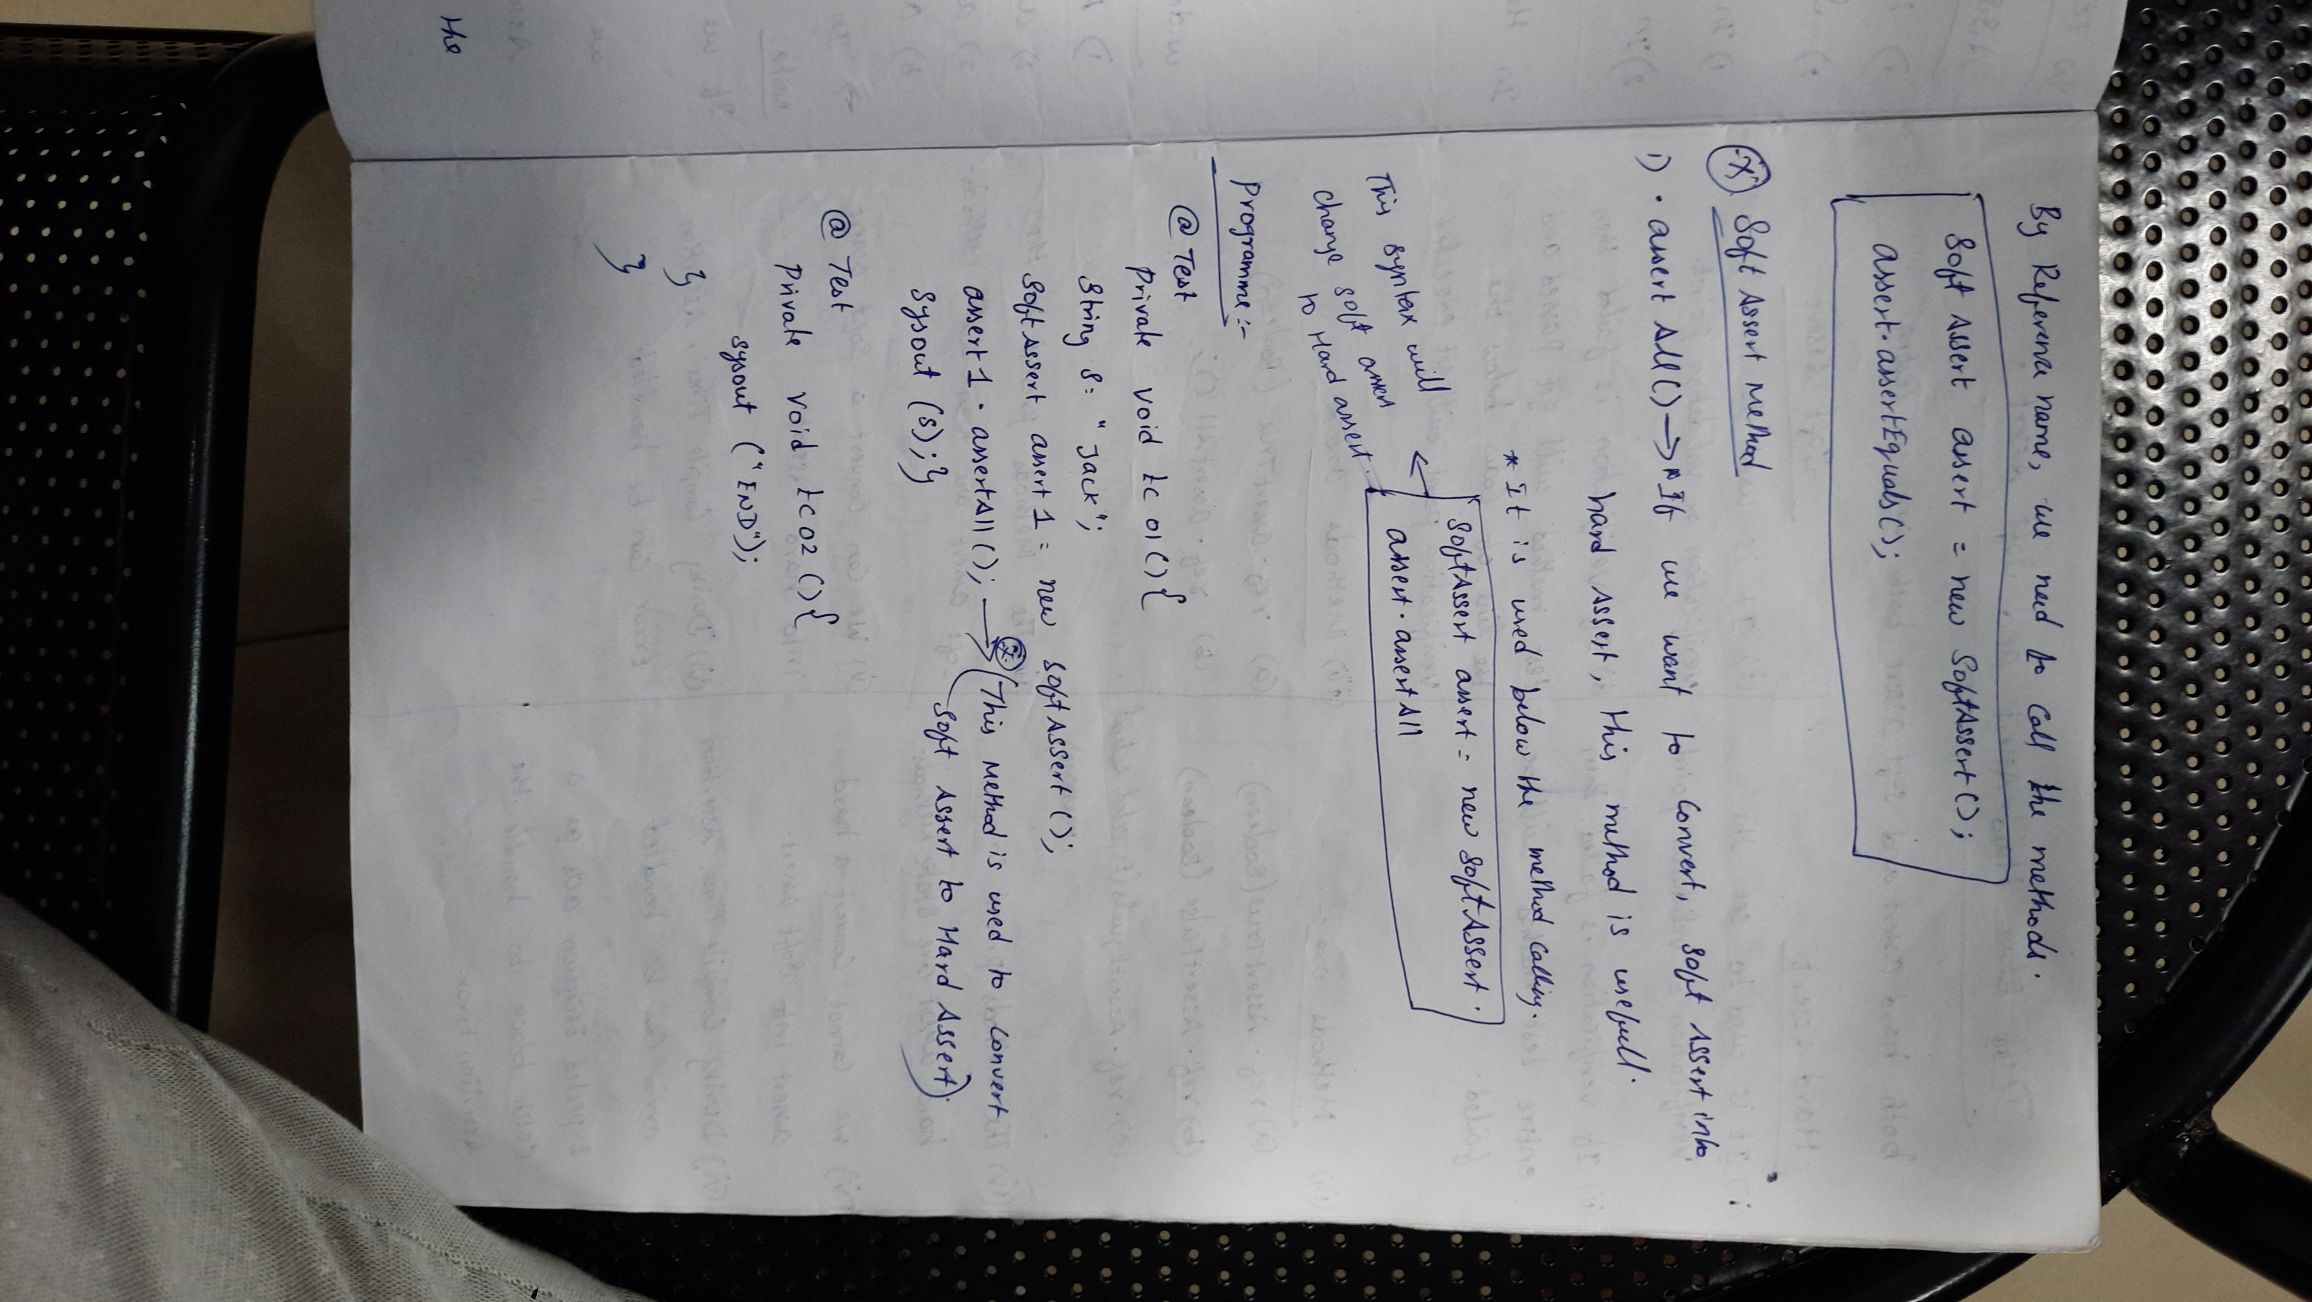 By Reference name, we need to call the methods.
Soft Assert assert = new SoftAssert();
assert.assertEquals();
Soft Assert Method
1) . assert All() → * If we want to convert, soft Assert into
hard Assert, this method is usefull.
* It is used below the method calling.
SoftAssert assert = new softAssert.
assert.assertAll
This syntax will
change soft assert
to Hard assert.
Programme:-
@ Test
Private void tc 01(){
String s= "Jack";
SoftAssert assert1 = new softAssert();
assert1.assertAll(); → (This Method is used to convert
soft Assert to Hard Assert).
Sysout (s);}
@ Test
Private void tc02(){
sysout ("END");
}
}
the